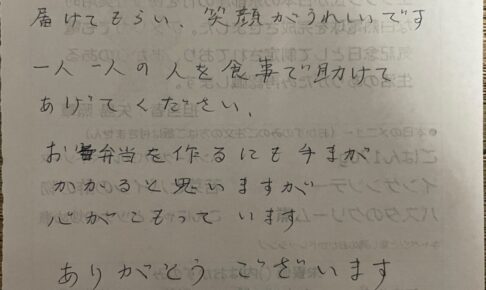 届けてもらい、笑顔がうれしいです
一人一人の人を食事で助けて
あげてください。
お弁当を作るにも手まが
かかると思いますが
心がこもって います
ありがとう ございます